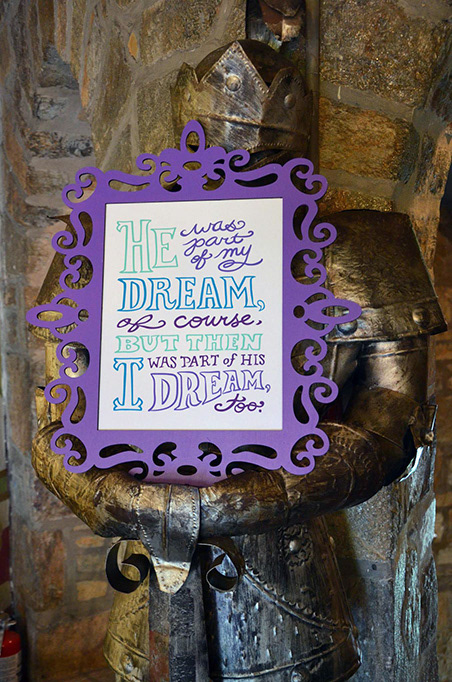 HE was
part
of my
DREAM,
of course,
BUT THEN
I WAS PART OF HIS
DREAM,
too!